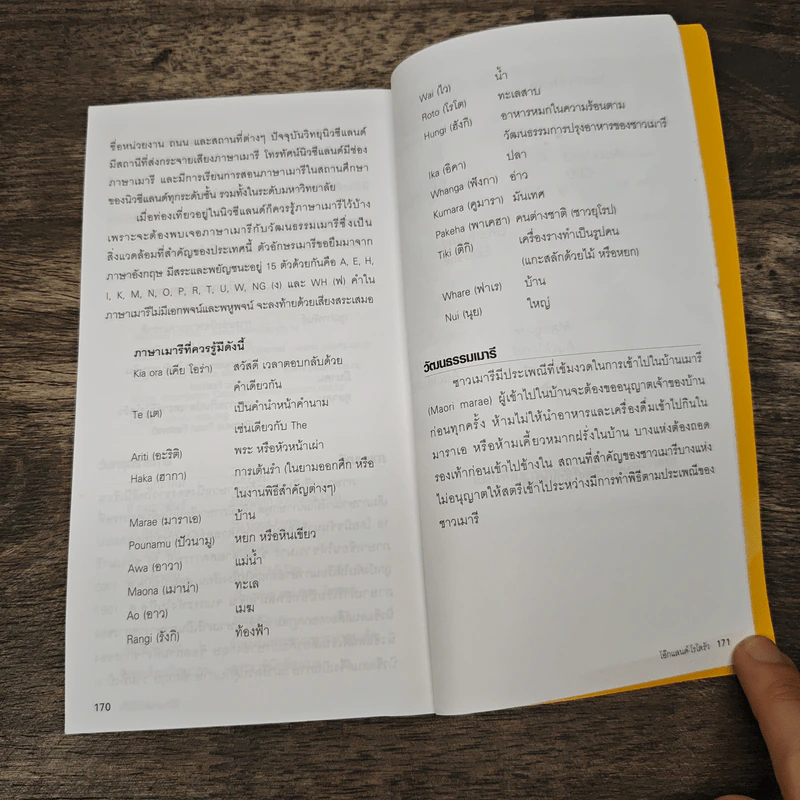 ชื่อหน่วยงาน ถนน และสถานที่ต่างๆ ปัจจุบันวิทยุนิวซีแลนด์
มีสถานีที่ส่งกระจายเสียงภาษาเมารี โทรทัศน์นิวซีแลนด์มีช่อง
ภาษาเมารี และมีการเรียนการสอนภาษาเมารีในสถานศึกษา
ของนิวซีแลนด์ทุกระดับชั้น รวมทั้งในระดับมหาวิทยาลัย
เมื่อท่องเที่ยวอยู่ในนิวซีแลนด์ก็ควรรู้ภาษาเมารีไว้บ้าง
เพราะจะต้องพบเจอภาษาเมารีกับวัฒนธรรมเมารีซึ่งเป็น
สิ่งแวดล้อมที่สำคัญของประเทศนี้ ตัวอักษรเมารีขอยืมมาจาก
ภาษาอังกฤษ มีสระและพยัญชนะอยู่ 15 ตัวด้วยกันคือ A, E, H,
I, K, M, N, O, P, R, T, U, W, NG (ง) และ WH (ฟ) คำใน
ภาษาเมารีไม่มีเอกพจน์และพหูพจน์ จะลงท้ายด้วยเสียงสระเสมอ
ภาษาเมารีที่ควรรู้มีดังนี้
Kia ora (เคีย โอร่า) สวัสดี เวลาตอบกลับด้วย
คำเดียวกัน
Te (เต) เป็นคำนำหน้าคำนาม
เช่นเดียวกับ The
Ariti (อะริติ) พระ หรือหัวหน้าเผ่า
Haka (ฮากา) การเต้นรำ (ในยามออกศึก หรือ
ในงานพิธีสำคัญต่างๆ)
Marae (มาราเอ) บ้าน
Pounamu (ปัวนามู) หยก หรือหินเขียว
Awa (อาวา) แม่น้ำ
Maona (เมาน่า) ทะเล
Ao (อาว) เมฆ
Rangi (รังกิ) ท้องฟ้า
170
Wai (ไว) น้ำ
Roto (โรโต) ทะเลสาบ
Hungi (ฮังกิ) อาหารหมกในความร้อนตาม
วัฒนธรรมการปรุงอาหารของชาวเมารี
Ika (อิคา) ปลา
Whanga (ฟังกา) อ่าว
Kumara (คูมารา) มันเทศ
Pakeha (พาเคฮา) คนต่างชาติ (ชาวยุโรป)
Tiki (ติกิ) เครื่องรางทำเป็นรูปคน
(แกะสลักด้วยไม้ หรือหยก)
Whare (ฟาเร) บ้าน
Nui (นุย) ใหญ่
วัฒนธรรมเมารี
ชาวเมารีมีประเพณีที่เข้มงวดในการเข้าไปในบ้านเมารี
(Maori marae) ผู้เข้าไปในบ้านจะต้องขออนุญาตเจ้าของบ้าน
ก่อนทุกครั้ง ห้ามไม่ให้นำอาหารและเครื่องดื่มเข้าไปกินใน
มาราเอ หรือห้ามเคี้ยวหมากฝรั่งในบ้าน บางแห่งต้องถอด
รองเท้าก่อนเข้าไปข้างใน สถานที่สำคัญของชาวเมารีบางแห่ง
ไม่อนุญาตให้สตรีเข้าไประหว่างมีการทำพิธีตามประเพณีของ
ชาวเมารี
โอ๊กแลนด์-โรโตรัว 171